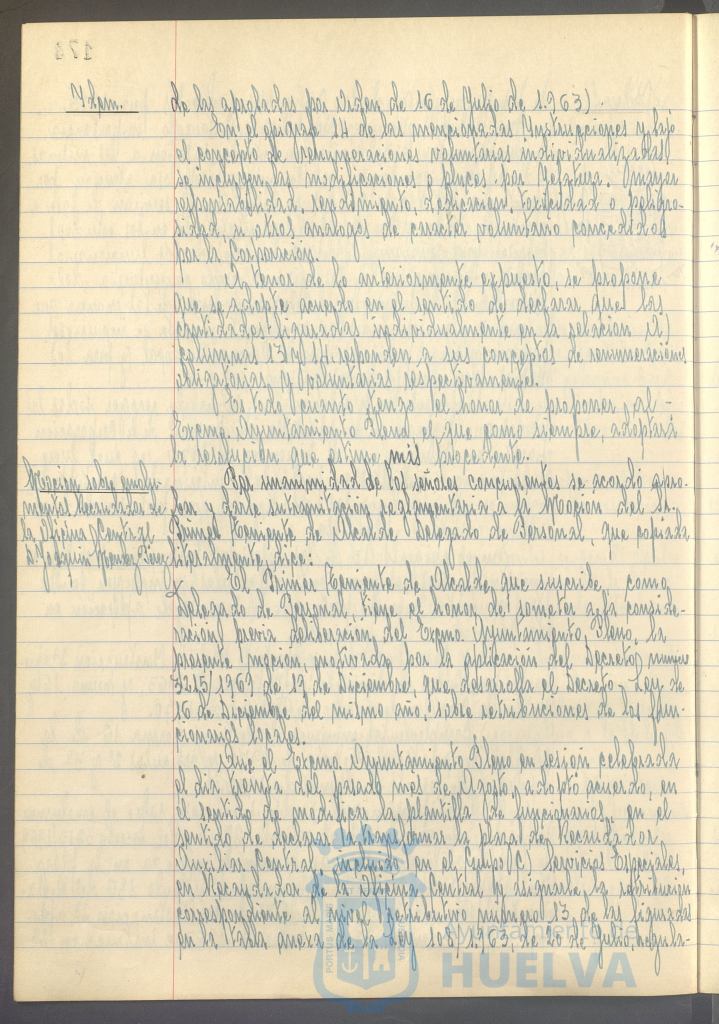 174
Idem.
de las aprobadas por Orden de 16 de Julio de 1.963).
En el epígrafe 14 de las mencionadas Instrucciones y bajo
el concepto de remuneraciones voluntarias individualizadas
se incluyen las modificaciones o pluces por Jefatura, mayor
responsabilidad, rendimiento, dedicacion, toxicidad o peligro-
sidad u otros analogos de caracter voluntario concedidos
por la Corporación.
A tenor de lo anteriormente expuesto, se propone
que se adopte acuerdo en el sentido de declarar que las
cantidades figuradas individualmente en la relacion A)
columnas 13 y 14 responden a sus conceptos de remuneraciones
obligatorias y voluntarias respectivamente.
Es todo cuanto tengo el honor de proponer al
Excmo. Ayuntamiento Pleno el que como siempre, adoptará
la resolución que estime más procedente.
Moción sobre
Recaudador de
la Oficina Central
D. Joaquin Perez
Por unanimidad de los señores concurrentes se acordó apro-
bar y darle tramitación reglamentaria a la Moción del Sr.
Primer Teniente de Alcalde Delegado de Personal, que copiada
literalmente, dice:
El Primer Teniente de Alcalde, que suscribe, como
Delegado de Personal, tiene el honor de someter a la conside-
ración, previa deliberación, del Excmo. Ayuntamiento Pleno, la
presente moción, motivada por la aplicación del Decreto numero
3215/1969 de 19 de Diciembre, que desarrolla el Decreto-Ley de
16 de Diciembre del mismo año, sobre retribuciones de los fun-
cionarios locales.
Que el Excmo. Ayuntamiento Pleno en sesión celebrada
el dia treinta del pasado mes de Agosto, adoptó acuerdo, en
el sentido de modificar la plantilla de funcionarios, en el
sentido de declarar transformar la plaza de Recaudador
Auxiliar Central, incluido en el Grupo C) Servicios Especiales,
en Recaudador de la Oficina Central y asignarle la retribucion
correspondiente al nivel retributivo numero 13 de las figuradas
en la tabla anexa de la Ley 108/1.963, de 20 de Julio, regula-
PORTUS MARIS
Ayuntamiento de
HUELVA